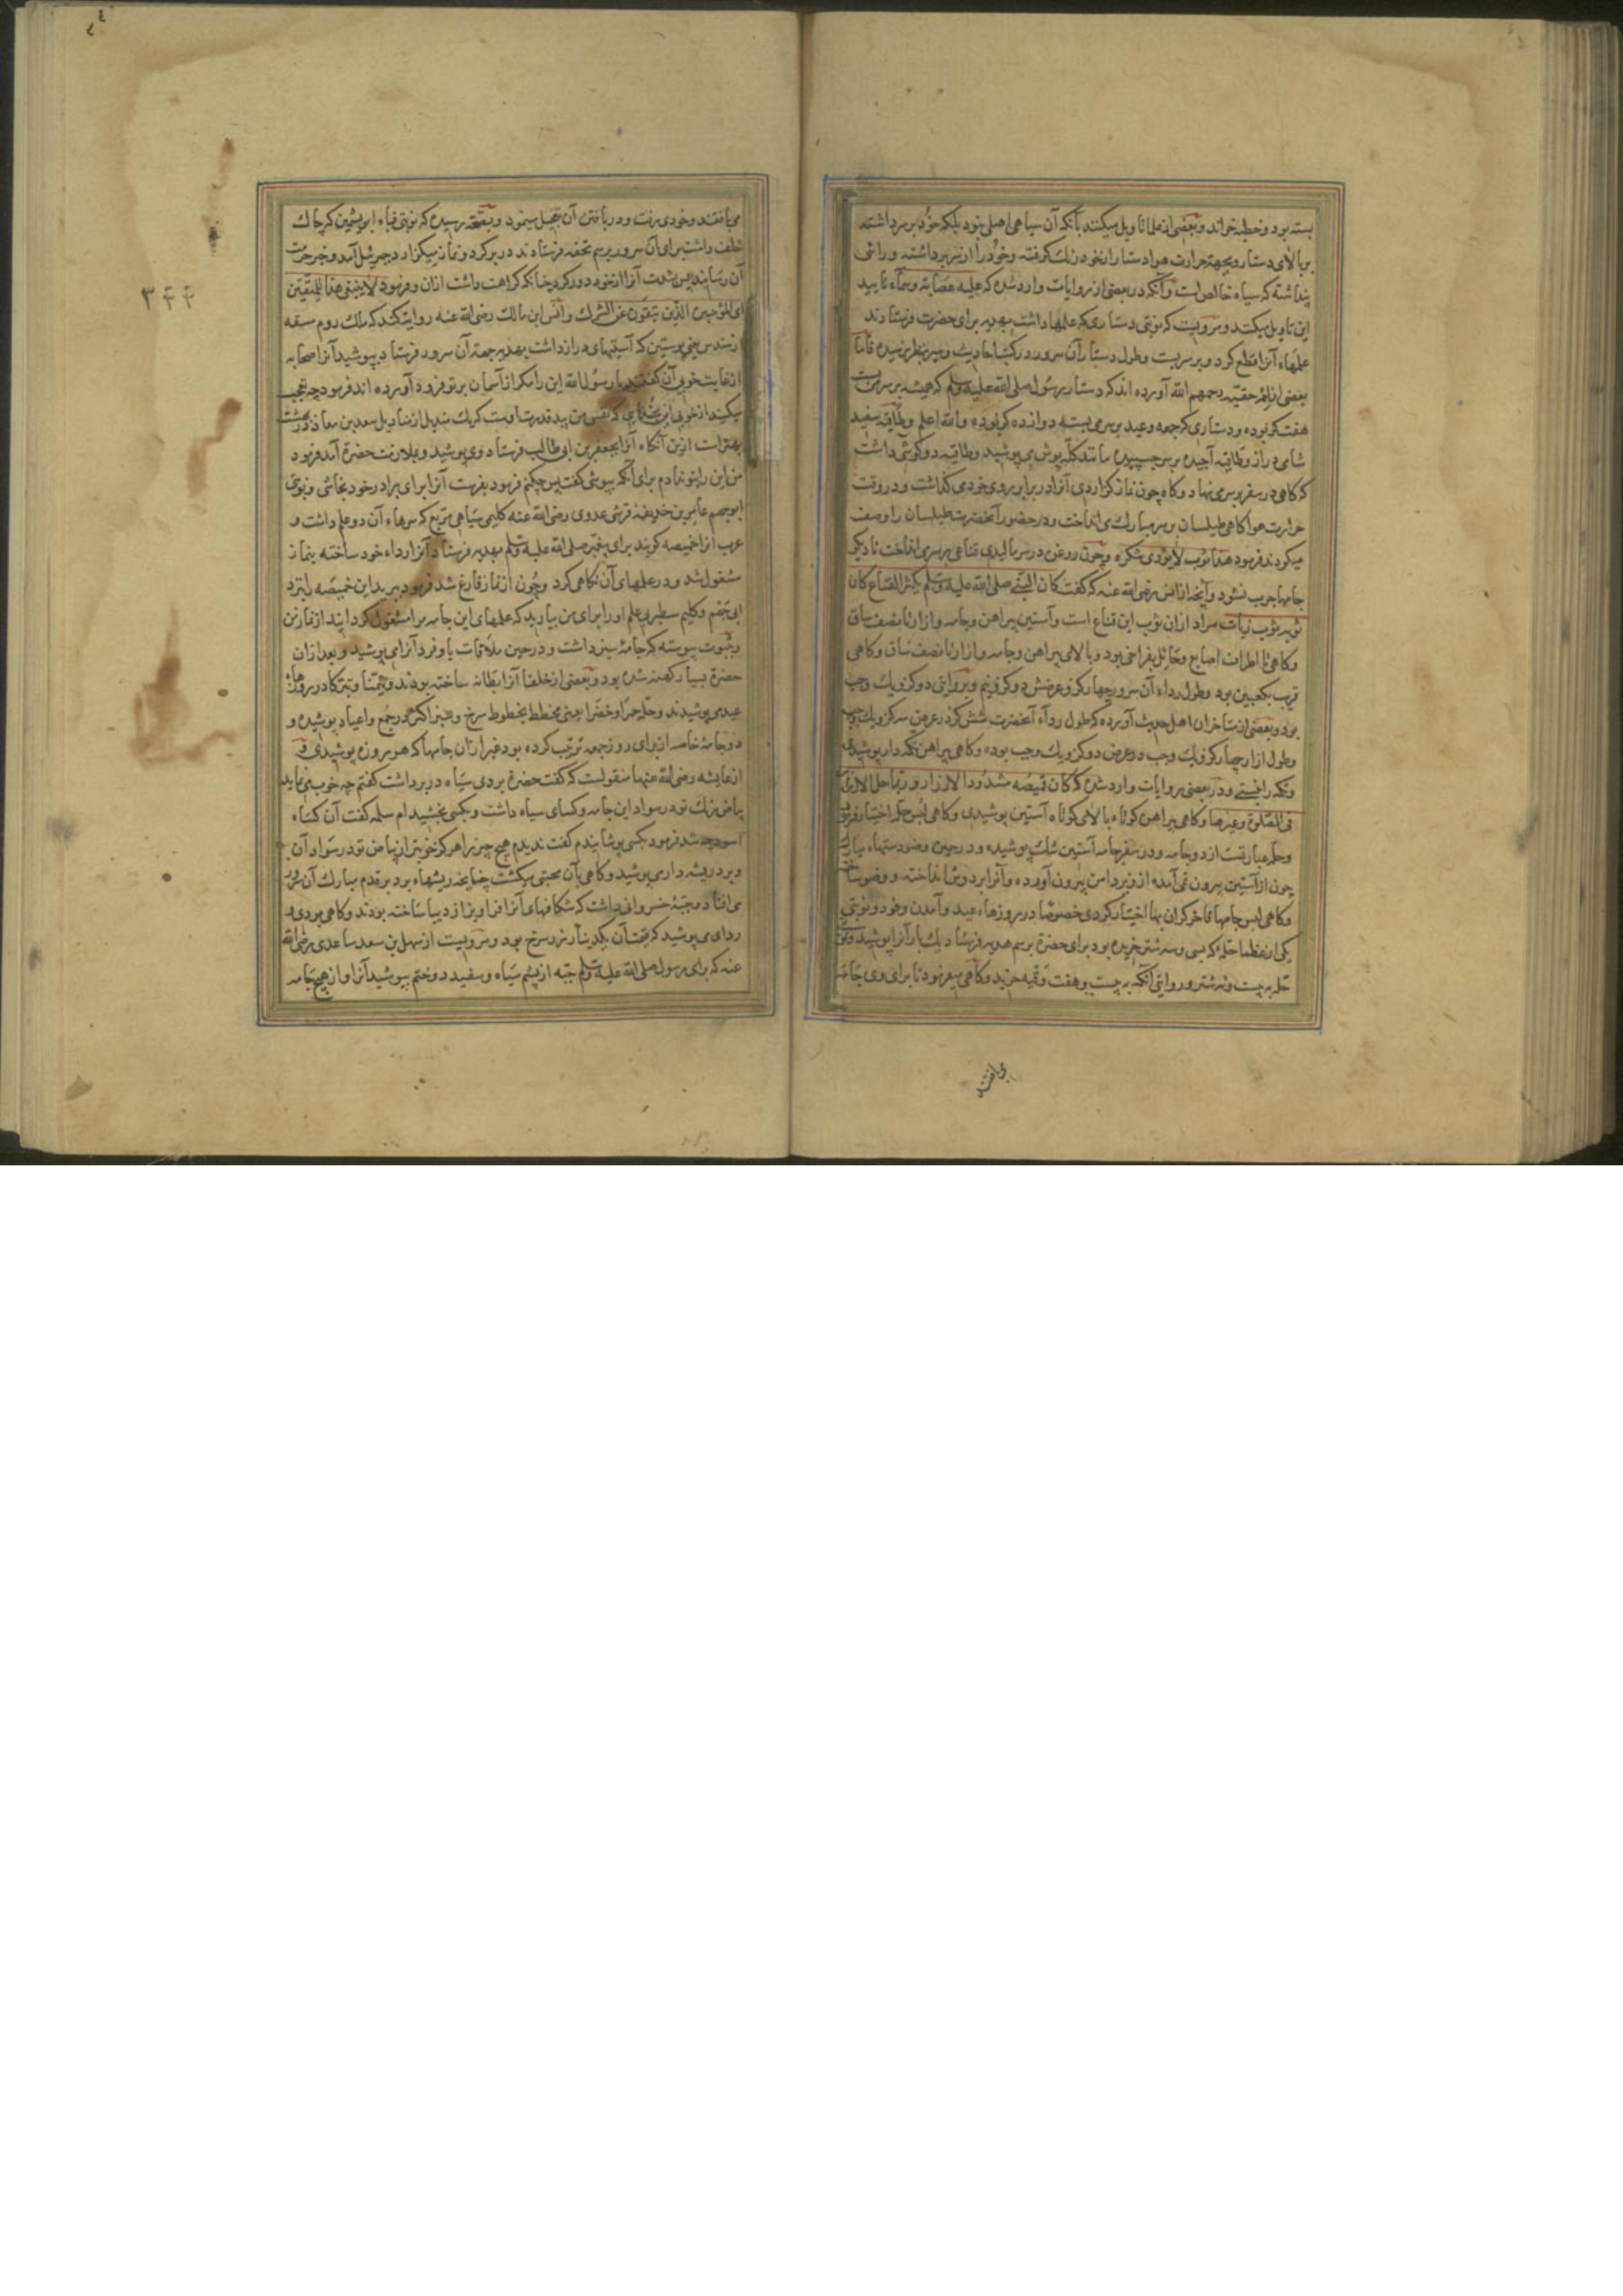 بسته بود و خطبه خواند و بعضی از علما تاویل میکنند بآنکه آن سیاهی اصلی نبود بلکه خود بر سر داشته
بر بالای دستار و بجهة حرارت هوا دستار از خود رنك كرفته و خود را از سر برداشته و رائی
پنداشته که سیاه خالص است و آنکه در بعضی از روایات وارد شده که علیه عصابة دسماء تایید
این تاویل میکند و مرویست که نوبتی دستاری که علمها داشت بهدیه برای حضرت فرستادند
علمهاء آنرا قطع کرد و بر سر بست و طول دستار آن سرور در کتب احادیث و سیر بنظر نرسیده فاما
بعضی از ائمه حنفیه رحمهم الله آورده اند که دستار رسول صلی الله علیه وسلم که همیشه بر سر می بست
هفت کز بوده و دستاری که جمعه و عید بر سر می بسته دوازده کز بوده والله اعلم و طاقیه سفید
شامی دراز و طاقیه آجیده بر سر چسپیده مانند کله پوش می پوشید و طاقیه دو کوشی داشت
که کاهی در سفر بر سر می نهاد و کاه چون نماز کزاردی آنرا در برابر روی خود می کذاشت و در وقت
حرارت هوا کاهی طیلسان بر سر مبارك می انداخت و در حضور آنحضرت طیلسان را وصف
میکردند فرمود هذا ثوب لا یؤدی شکره و چون روغن در سر مالیدی قناعی بر سر می انداخت تا دیکر
جامها چرب نشود و آنچه از انس رضی الله عنه که کفت کان النبی صلی الله علیه وسلم یکثر القناع کان
ثوبه ثوب زیات مراد از ان ثوب این قناع است و آستین پیراهن و جامه و ازار تا نصف ساق
و کاهی تا اطراف اصابع و حائل بفراخی بود و بالای پیراهن و جامه و ازار تا نصف ساق و کاهی
قریب بکعبین بود و طول رداء آن سرور چهار کز و عرضش دو کز و نیم و بروایتی دو کز و یك وجب
بود و بعضی از متاخران اهل حدیث آورده که طول رداء آنحضرت شش کز در عرض سه کز و یك وجب
و طول ازار چهار کز و یك وجب در عرض دو کز و یك وجب بوده و کاهی پیراهن تکمه دار پوشیدی
و تکمه را بستی و در بعضی روایات وارد شده که کان قمیصه مشدود الازرار و ربما حل الازرار
فی الصلوة و غیرها و کاهی پیراهن کوتاه بالای کوتاه آستین پوشیدی و کاهی لبس حله اختیار فرمودی
و حله عبارتست از دو جامه و در سفر جامه آستین تنك پوشیده و در حین وضو دستهاء مبارك
چون از آستین بیرون نمی آمده از زیر دامن بیرون آورده و آنرا بر دوش انداخته و وضو ساخته
و کاهی لبس جامها فاخر کران بها اختیار کردی خصوصا در روزهاء عید و آمدن وفود و نوبتی
یکی از عظما حله که بسی و سه شتر خریده بود برای حضرة برسم هدیه فرستاد یك بار آنرا پوشید و نوبتی
حله به بیست و نه شتر و روایتی آنکه به بیست و هفت وقیه خرید و کاهی میفرمود تا برای وی جامه
می بافتند
می بافتند و خود می رفت و در بافتن آن تعجیل مینمود و بصحة رسیده که نوبتی قباء ابریشمین که چاك
خلف داشت برای آن سرور برسم تحفه فرستادند در بر کرد و نماز میکزارد جبرئیل آمد و خبر حرمت
آن رسانید پس بشدت آنرا از خود دور کرد چنانکه کراهت داشت ازان و فرمود لا ینبغی هذا للمتقین
ای للمؤمنین الذین یتقون عن الشرك و انس ابن مالك رضی الله عنه روایت کند که ملك روم مستقه
از سندس یعنی پوستین که آستینهای دراز داشت بهدیه بجهة آن سرور فرستاد بپوشید آنرا صحابه
از غایت خوبی آن کفتند یا رسول الله این را مکر از آسمان بر تو فرود آورده اند فرمود چه تعجب
میکنید از خوبی این بخدای که نفس من بید قدرت اوست که یك مندیل از منادیل سعد بن معاذ در بهشت
بهتر است ازین آنکاه آنرا بجعفر بن ابی طالب فرستاد وی پوشید و بملازمت حضرة آمد فرمود
من این را بتو ندادم برای آنکه بپوشی کفت پس چکنم فرمود بفرست آنرا برای برادر خود نجاشی و نوبتی
ابو جهم عامر بن حذیفه قرشی عدوی رضی الله عنه کلیمی سیاهی مربع که سرهاء آن دو علم داشت و
عرب آنرا خمیصه کویند برای پیغمبر صلی الله علیه وسلم بهدیه فرستاد آنرا رداء خود ساخته بنماز
مشغول شد و در علمهای آن نکاهی کرد و چون از نماز فارغ شد فرمود ببرید این خمیصه را نزد
ابی جهم و کلیم سطبر بی علم او را برای من بیارید که علمهای این جامه مرا مشغول کردانید از نماز من
و بثبوت پیوسته که جامهٔ سبز داشت و در حین ملاقات با وفود آنرا می پوشید و بعد از ان
حضرة بسیار کهنه شده بود و بعضی از خلفا آنرا بطانه ساخته بودند و تیمنا و تبرکا در روزهاء
عید می پوشیدند و حله حمرا و خضرا یعنی مخطط بخطوط سرخ و سبز اکثر در جمع و اعیاد پوشیده و
دو جامهٔ خاصه از برای روز جمعه ترتیب کرده بود غیر از ان جامها که هر روزه پوشیدی و
از عایشه رضی الله عنها منقولست که کفت حضرة بردی سیاه در بر داشت کفتم چه خوب می نماید
بیاض رنك تو در سواد این جامه و کسای سیاه داشت و بکسی بخشید ام سلمه کفت آن کساء
اسود چه شد فرمود بکسی پوشانیدم کفت ندیدم هیچ چیز را هرکز خوبتر از بیاض تو در سواد آن
و برد ریشه داری پوشید و کاهی بآن محتبی میکشت چنانچه ریشهاء برد بر قدم مبارك آن سرور
می افتاد و جبهٔ خسروانی داشت که شکافهای آنرا فراویز از دیبا ساخته بودند و کاهی بردی و
ردای می پوشید که قیمت آن یکدینار زر سرخ بود و مرویست از سهل بن سعد ساعدی رضی الله
عنه که برای رسول صلی الله علیه وسلم جبه از پشم سیاه و سفید دوختم بپوشید آنرا و از هیچ جامه